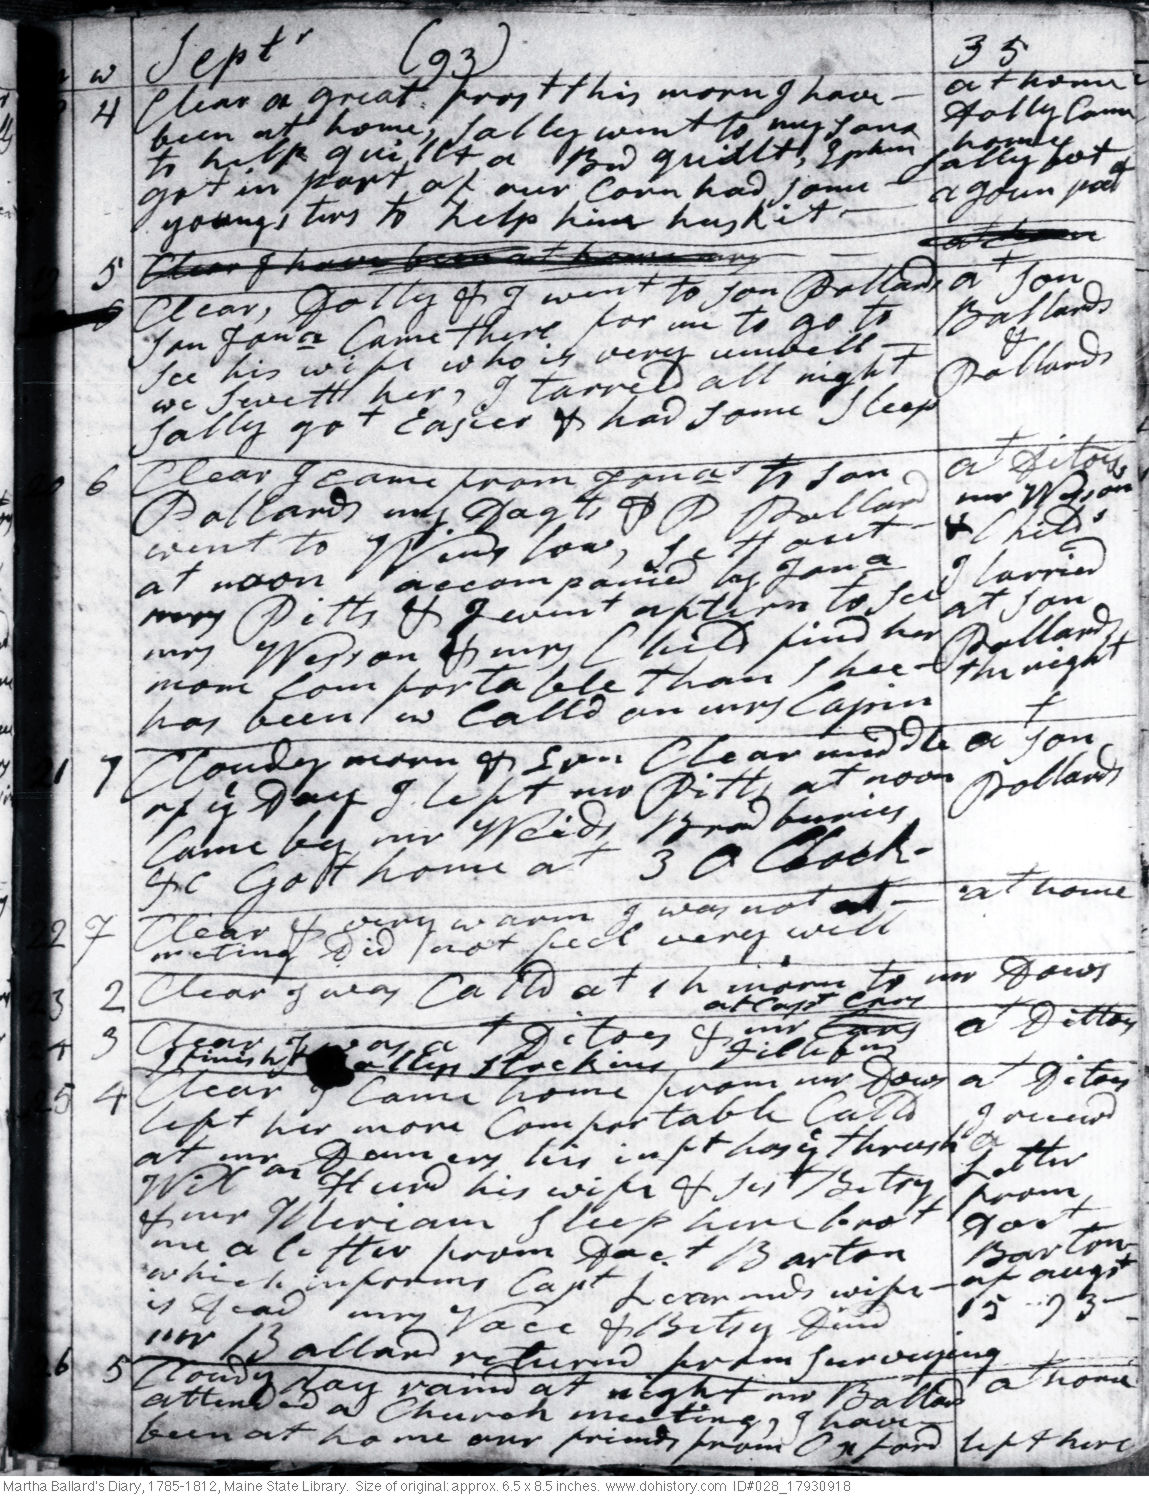 w Septr (93) 35
4 Clear a great frost this morn I have at home
been at home, Sally went to my Sons Dolly Came
to help quillt a Bed quillt, Ephm home
got in part of our Corn had some Sally sot
youngsters to help him husk it a gown patt
19 5 Clear I have been at home my at home
Clear, Dolly & I went to son Pollards at son
son Jona Came there for me to go to Ballards
see his wife who is very unwell &
we swett her, I tarred all night Pollards
Sally got Easier & had some sleep
20 6 Clear I came from Jonas to son at Ditoes
Pollards my Dagts & P Pollard mr Wesson
went to Winslow, sett out & Childs
at noon accompanied by Jona I tarried
mrs Pitts & I went aftern to see at son
mrs Wesson & mrs Child find her Pollards
more Comfortable than shee the night
has been w Calld on mrs Capin
21 7 Cloudy morn & Even Clear middle at son
of ye Day I left mr Pitts at noon Pollards
Came by mr Weids Bradburies
&c Gott home at 3 O Clock
22 7 Clear & very warm I was not at at home
meting Did not feel very well
23 2 Clear I was Calld at 1 h morn to mr Dows
at Capt Coxs
24 3 Clear I was at Ditoes & mr at Dittoes
I finisht Sallys Stockins
25 4 Clear I Came home from mr Dows at Ditoes
left her more Comfortable Calld I receivd
at mr Damers his inft has ye thrush a
Wilm Hurd his wife & sest Betsy Letter
& mr Meriam sleep here brot from
me a letter from Doct Barton Doct
which informs Capt Learnds wife Barton
is dead mrs Vace & Betsy Dind of augst
mr Ballard returnd from surveying 15 - 93
26 5 Cloudy day raind at night mr Ballard at home
attended a Church meeting, I have
been at home our friends from Oxford left here
Martha Ballard's Diary, 1785-1812, Maine State Library. Size of original:approx. 6.5 x 8.5 inches. www.dohistory.com ID#028_17930918